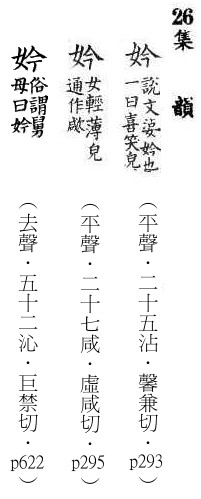 26集　韻
妗說文婆妗也一曰喜笑皃（平聲．二十五沾．馨兼切．p293）
妗女輕薄皃通作㰹（平聲．二十七咸．虛咸切．p295）
妗俗謂舅母曰妗（去聲．五十二沁．巨禁切．p622）